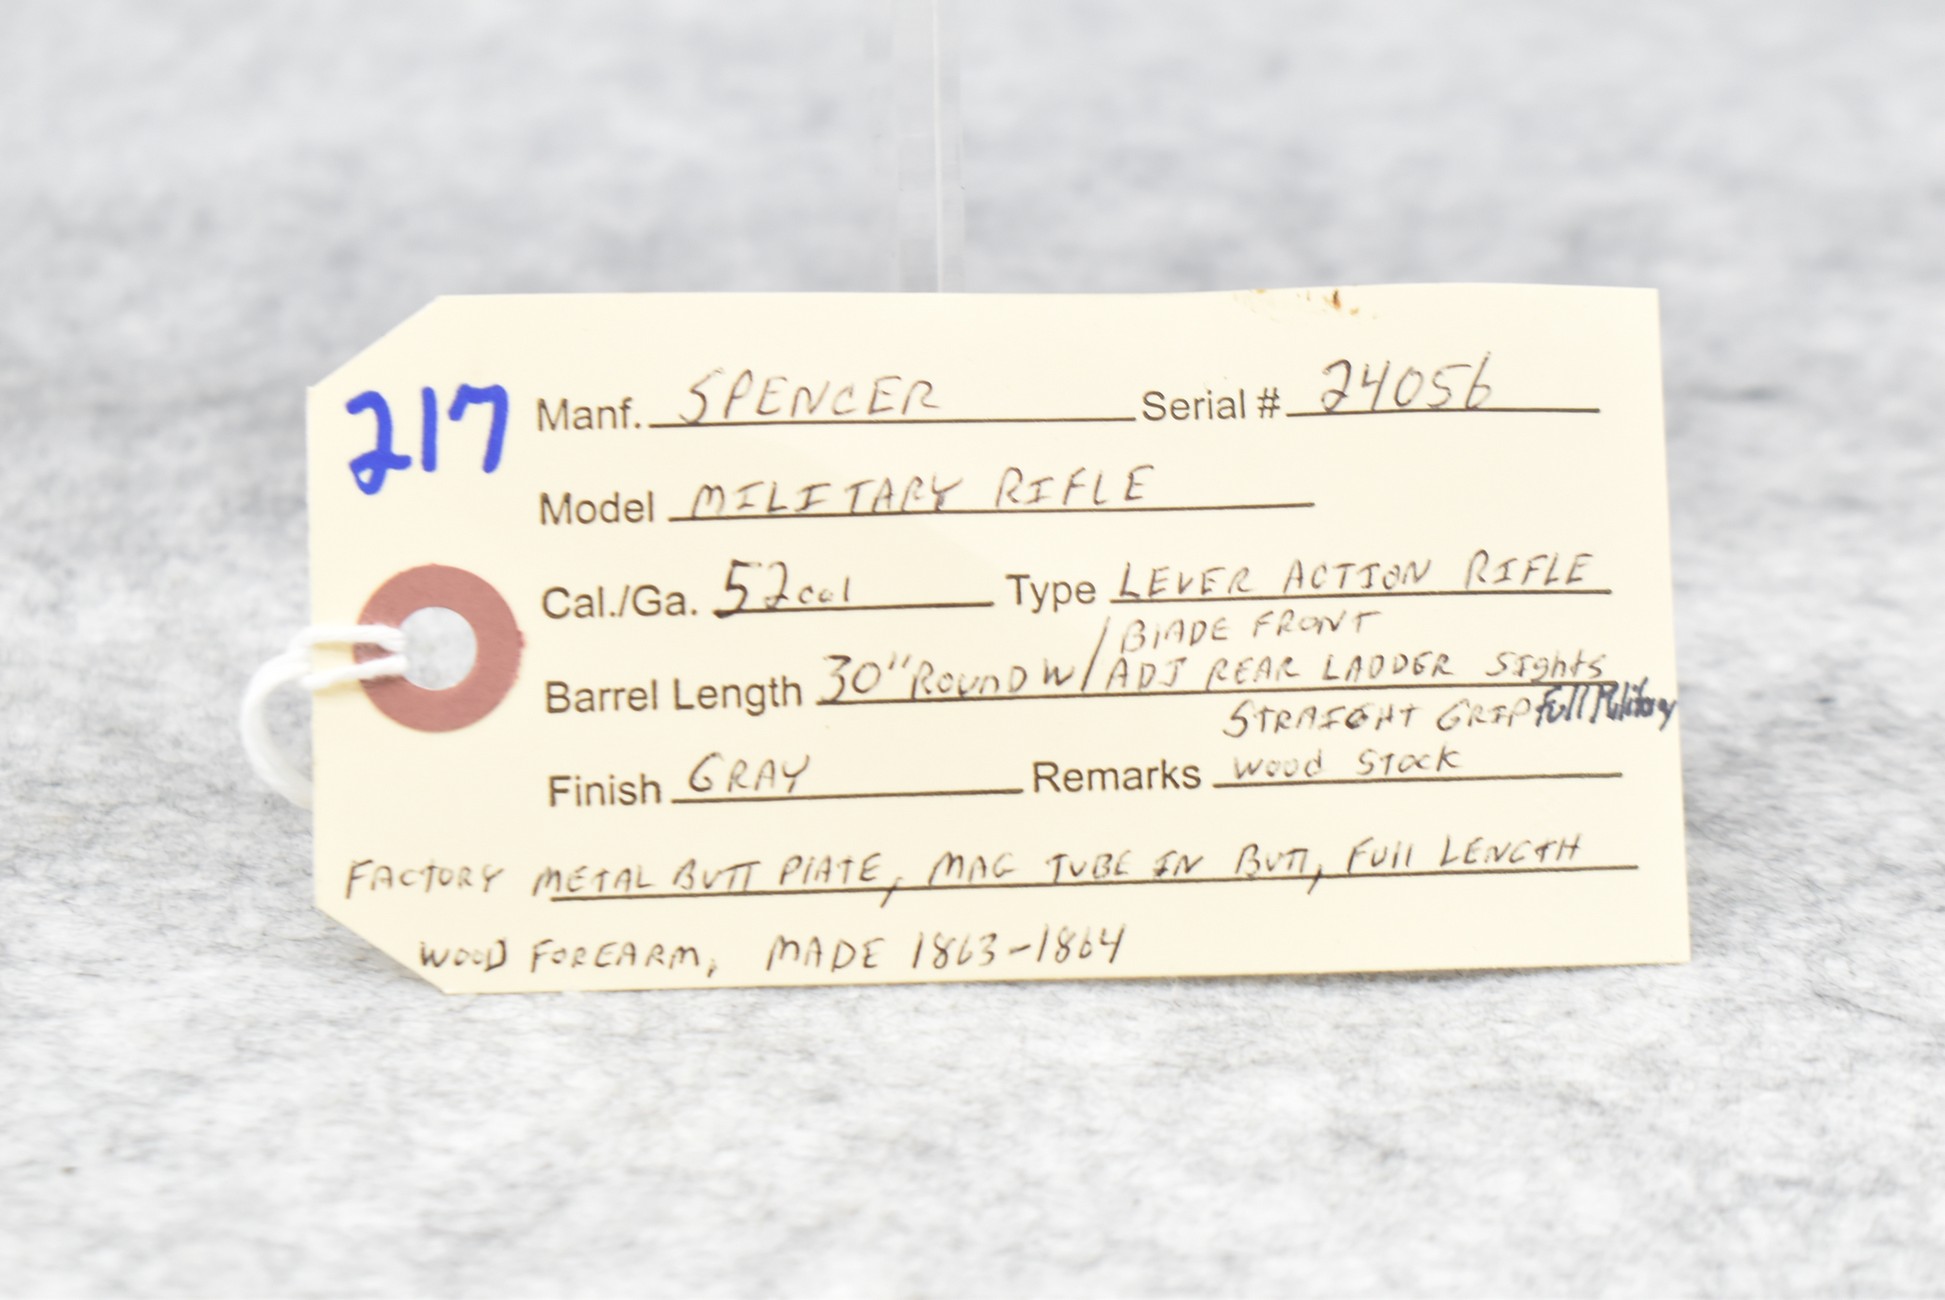 217
Manf. SPENCER Serial # 24056
Model MILITARY RIFLE
Cal./Ga. 52cal Type LEVER ACTION RIFLE
BLADE FRONT
Barrel Length 30" ROUND W/ ADJ REAR LADDER Sights
STRAIGHT GRIP Full Military
Finish GRAY Remarks Wood STOCK
FACTORY METAL BUTT PLATE, MAG TUBE IN BUTT, FUll LENGTH
WOOD FOREARM, MADE 1863-1864